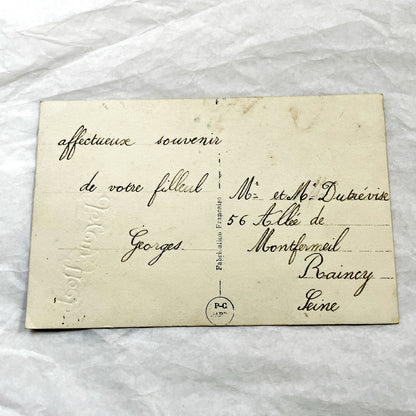 affectueux souvenir
de votre filleul
Georges
Fabrication Française
Mr et Me Dutrévise
56 Allée de
Montfermeil
Raincy
Seine
P-C